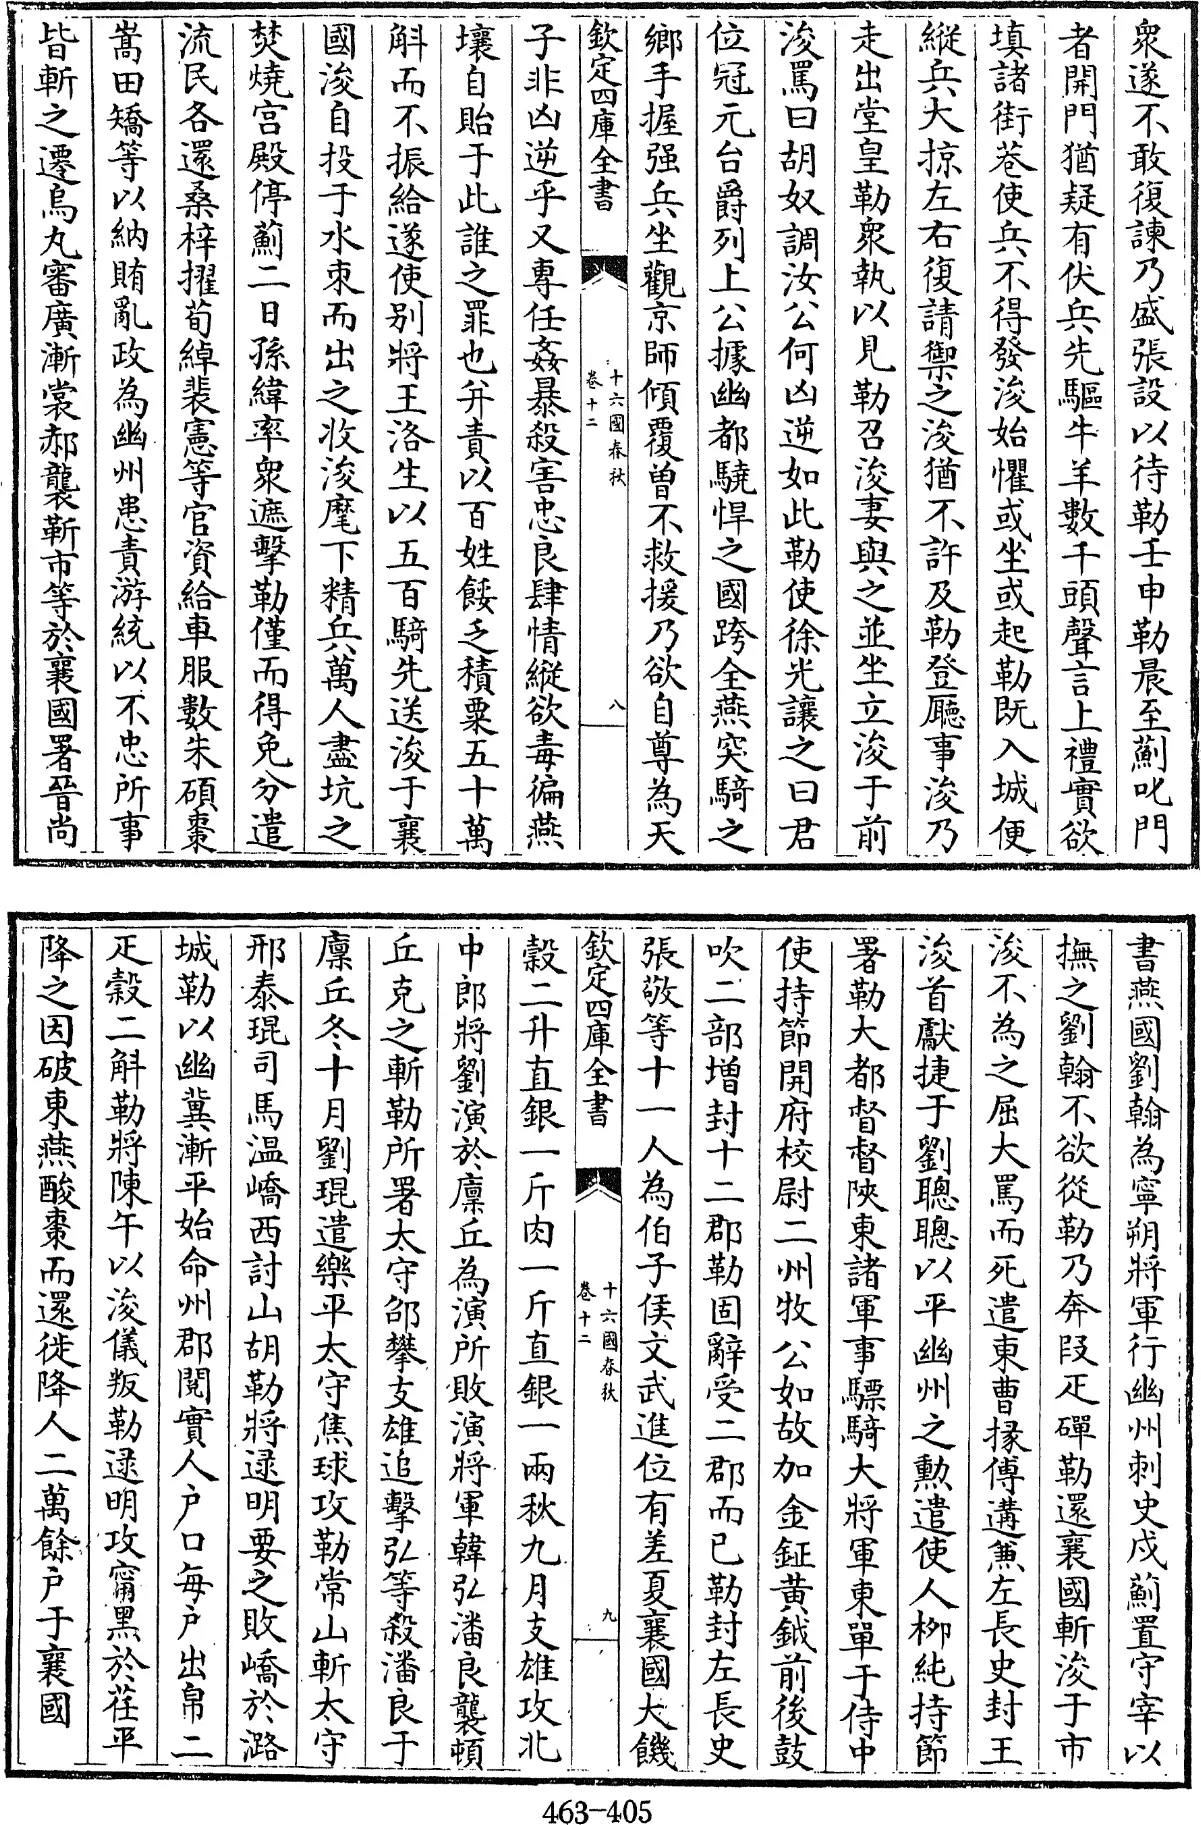 衆遂不敢復諫乃盛張設以待勒壬申勒晨至薊叱門
者開門猶疑有伏兵先驅牛羊數千頭聲言上禮實欲
填諸街巷使兵不得發浚始懼或坐或起勒既入城便
縱兵大掠左右復請禦之浚猶不許及勒登廳事浚乃
走出堂皇勒衆執以見勒召浚妻與之並坐立浚于前
浚罵曰胡奴調汝公何凶逆如此勒使徐光讓之曰君
位冠元台爵列上公據幽都驍悍之國跨全燕突騎之
鄉手握强兵坐觀京師傾覆曽不救援乃欲自尊為天
欽定四庫全書
十六國春秋
卷十二
八
子非凶逆乎又專任姦暴殺害忠良肆情縱欲毒徧燕
壤自貽于此誰之罪也并責以百姓餒乏積粟五十萬
斛而不振給遂使别將王洛生以五百騎先送浚于襄
國浚自投于水束而出之收浚麾下精兵萬人盡坑之
焚燒宫殿停薊二日孫緯率衆遮擊勒僅而得免分遣
流民各還桑梓擢荀綽裴憲等官資給車服數朱碩棗
嵩田矯等以納賄亂政為幽州患責游統以不忠所事
皆斬之遷烏丸審廣漸裳郝襲靳市等於襄國署晉尚
書燕國劉翰為寧朔將軍行幽州刺史戍薊置守宰以
撫之劉翰不欲從勒乃奔段疋磾勒還襄國斬浚于市
浚不為之屈大罵而死遣東曹掾傅遘兼左長史封王
浚首獻捷于劉聰聰以平幽州之勲遣使人柳純持節
署勒大都督督陜東諸軍事驃騎大將軍東單于侍中
使持節開府校尉二州牧公如故加金鉦黄鉞前後鼓
吹二部增封十二郡勒固辭受二郡而已勒封左長史
張敬等十一人為伯子侯文武進位有差夏襄國大饑
欽定四庫全書
十六國春秋
卷十二
九
穀二升直銀一斤肉一斤直銀一兩秋九月支雄攻北
中郎將劉演於廩丘為演所敗演將軍韓弘潘良襲頓
丘克之斬勒所署太守邵攀支雄追擊弘等殺潘良于
廩丘冬十月劉琨遣樂平太守焦球攻勒常山斬太守
邢泰琨司馬温嶠西討山胡勒將逯明要之敗嶠於潞
城勒以幽冀漸平始命州郡閱實人户口每户出帛二
疋穀二斛勒將陳午以浚儀叛勒逯明攻甯黑於茌平
降之因破東燕酸棗而還徙降人二萬餘户于襄國
463-405